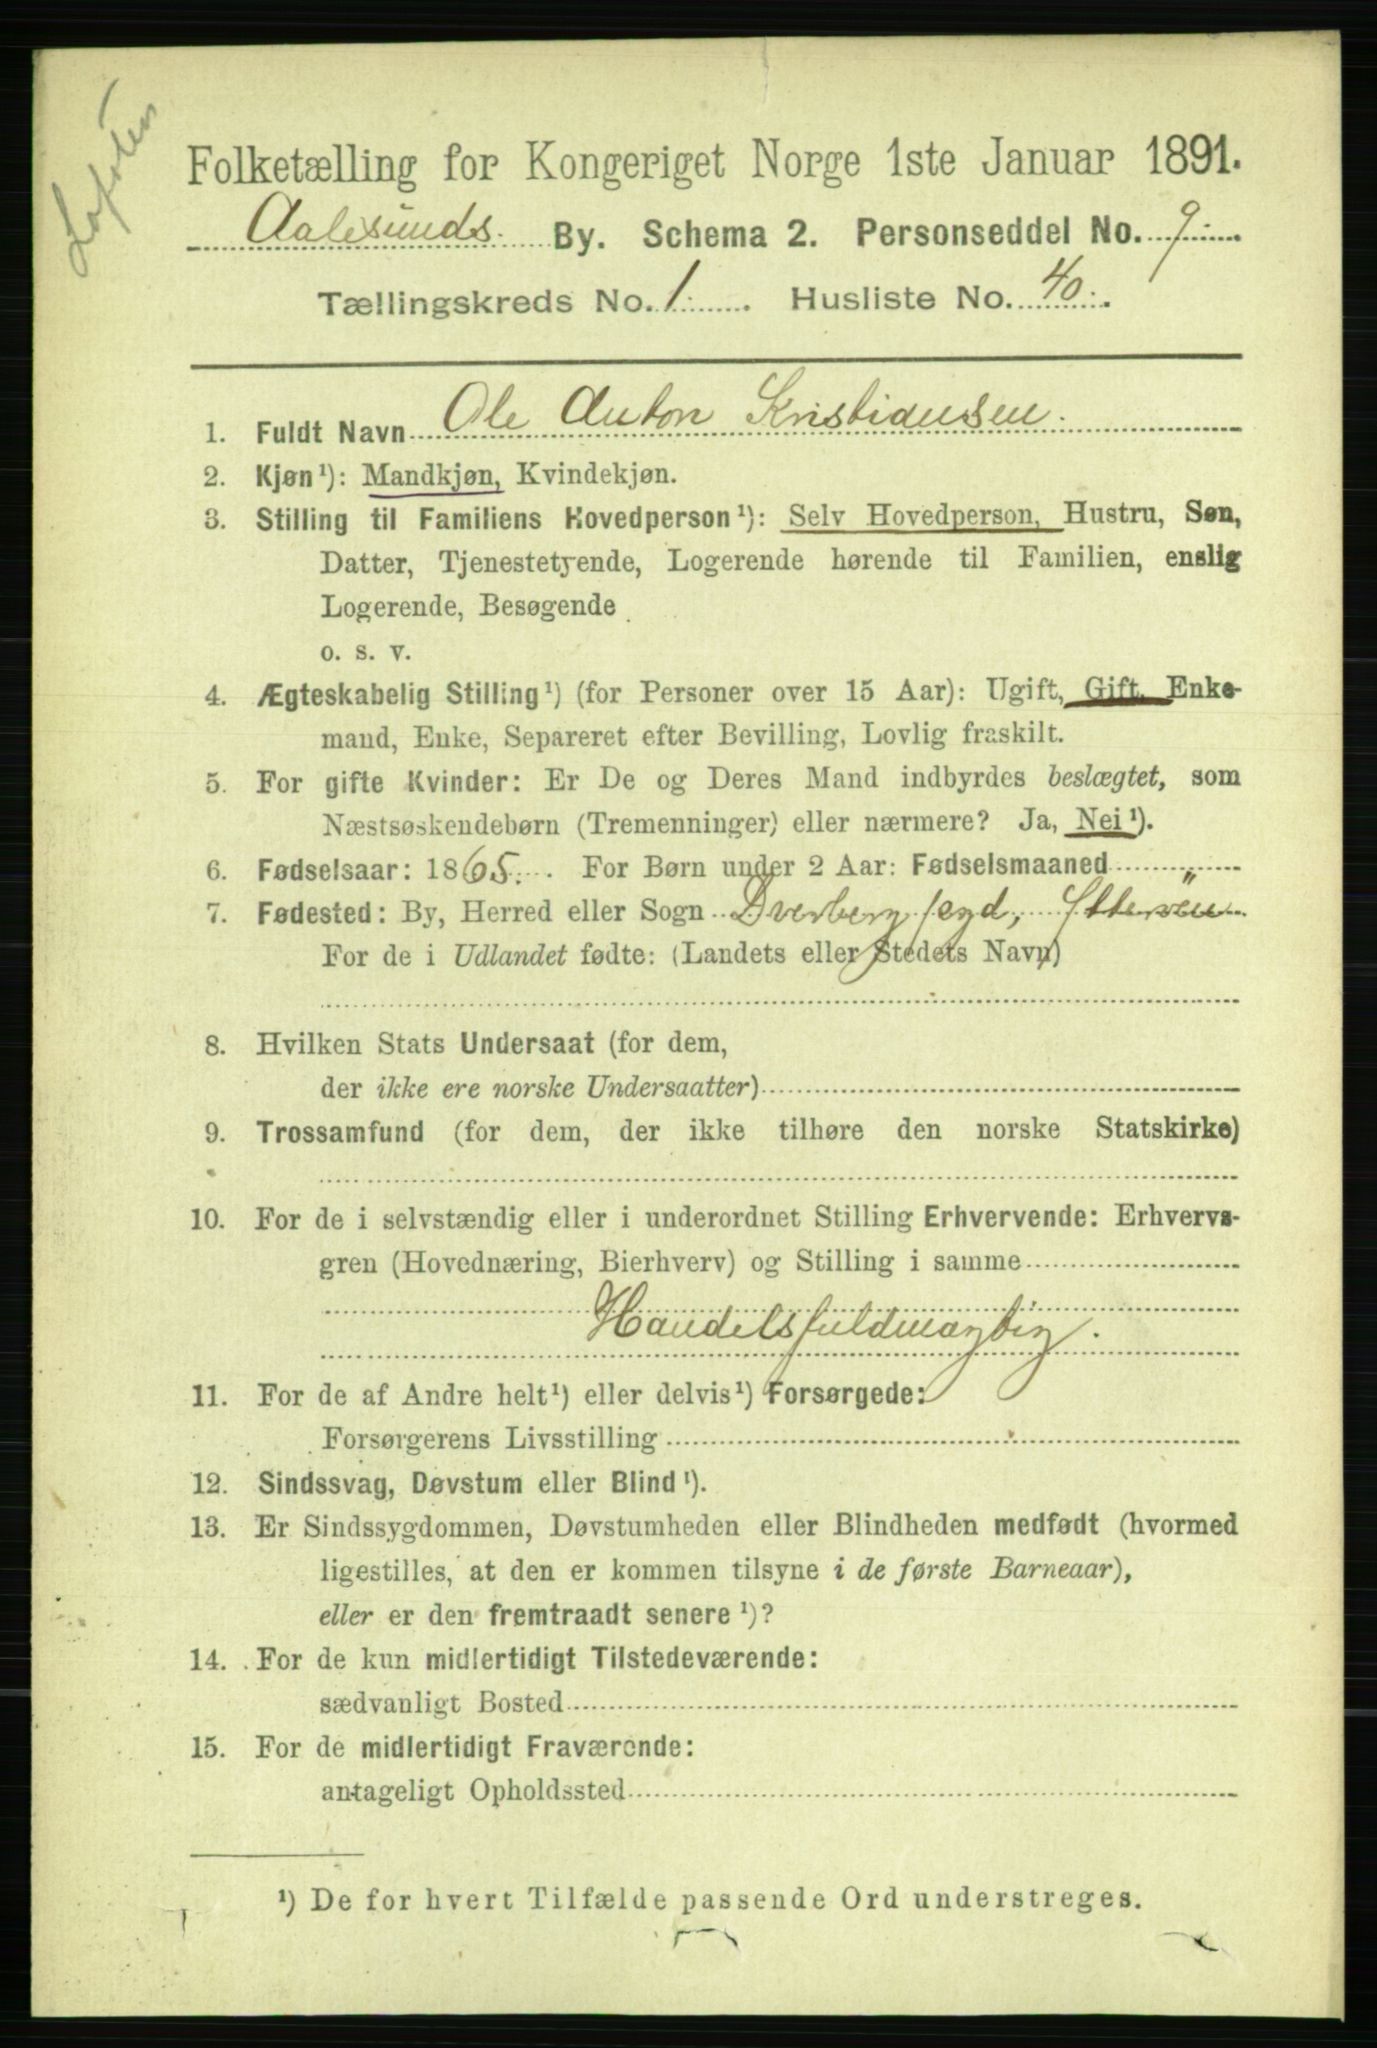 Lofoten
Folketælling for Kongeriget Norge 1ste Januar 1891.
Aalesunds. By. Schema 2. Personseddel No. 9
Tællingskreds No. 1. Husliste No. 40.
1. Fuldt Navn Ole Anton Kristiansen.
2. Kjøn¹): Mandkjøn, Kvindekjøn.
3. Stilling til Familiens Hovedperson¹): Selv Hovedperson, Hustru, Søn,
Datter, Tjenestetyende, Logerende hørende til Familien, enslig
Logerende, Besøgende
o. s. v.
4. Ægteskabelig Stilling¹) (for Personer over 15 Aar): Ugift, Gift, Enke-
mand, Enke, Separeret efter Bevilling, Lovlig fraskilt.
5. For gifte Kvinder: Er De og Deres Mand indbyrdes beslægtet, som
Næstsøskendebørn (Tremenninger) eller nærmere? Ja, Nei¹).
6. Fødselsaar: 1865. For Børn under 2 Aar: Fødselsmaaned
7. Fødested: By, Herred eller Sogn Dverberg
For de i Udlandet fødte: (Landets eller Stedets Navn)
8. Hvilken Stats Undersaat (for dem,
der ikke ere norske Undersaatter)
9. Trossamfund (for dem, der ikke tilhøre den norske Statskirke)
10. For de i selvstændig eller i underordnet Stilling Erhvervende: Erhvervs-
gren (Hovednæring, Bierhverv) og Stilling i samme
Handelsfuldmægtig.
11. For de af Andre helt¹) eller delvis¹) Forsørgede:
Forsørgerens Livsstilling
12. Sindssvag, Døvstum eller Blind¹).
13. Er Sindssygdommen, Døvstumheden eller Blindheden medfødt (hvormed
ligestilles, at den er kommen tilsyne i de første Barneaar),
eller er den fremtraadt senere¹)?
14. For de kun midlertidigt Tilstedeværende:
sædvanligt Bosted
15. For de midlertidigt Fraværende:
antageligt Opholdssted
¹) De for hvert Tilfælde passende Ord understreges.